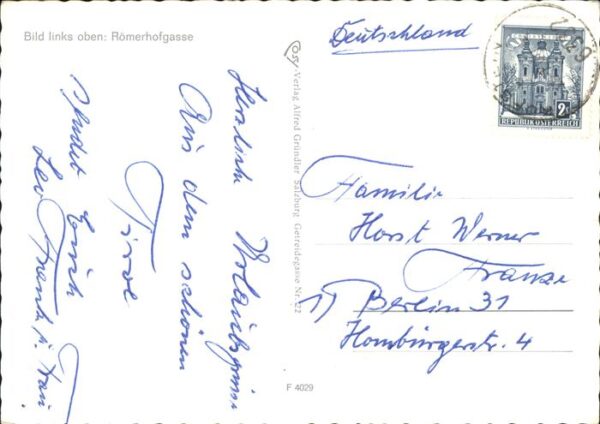 Bild links oben: Römerhofgasse
Herzliche Urlaubsgrüße
Aus dem schönen
Tirol
sendet Euch
Frank
Cosy-Verlag Alfred Gründler Salzburg Getreidegasse Nr. 22
F 4029
Deutschland
2
REPUBLIK ÖSTERREICH
Familie
Horst Werner
Franze
1) Berlin 31
Homburgerstr. 4